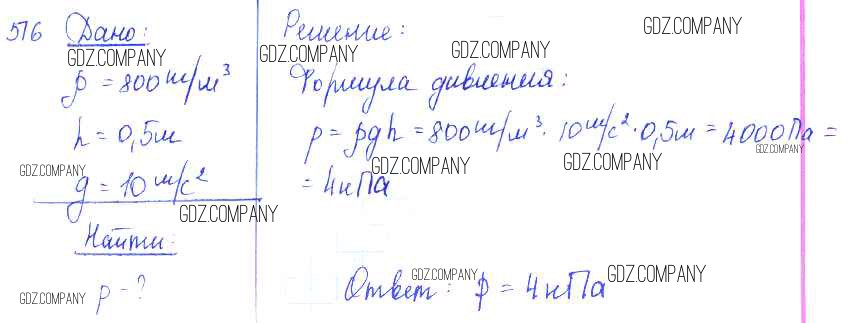 576 Дано:
ρ = 800 кг/м³
h = 0,5м
g = 10 м/с²
Найти:
p - ?
Решение:
Формула давления:
p = ρgh = 800 кг/м³ · 10 м/с² · 0,5м = 4000 Па =
= 4 кПа
Ответ: p = 4 кПа
GDZ.COMPANY
GDZ.COMPANY
GDZ.COMPANY
GDZ.COMPANY
GDZ.COMPANY
GDZ.COMPANY
GDZ.COMPANY
GDZ.COMPANY
GDZ.COMPANY
GDZ.COMPANY
GDZ.COMPANY
GDZ.COMPANY